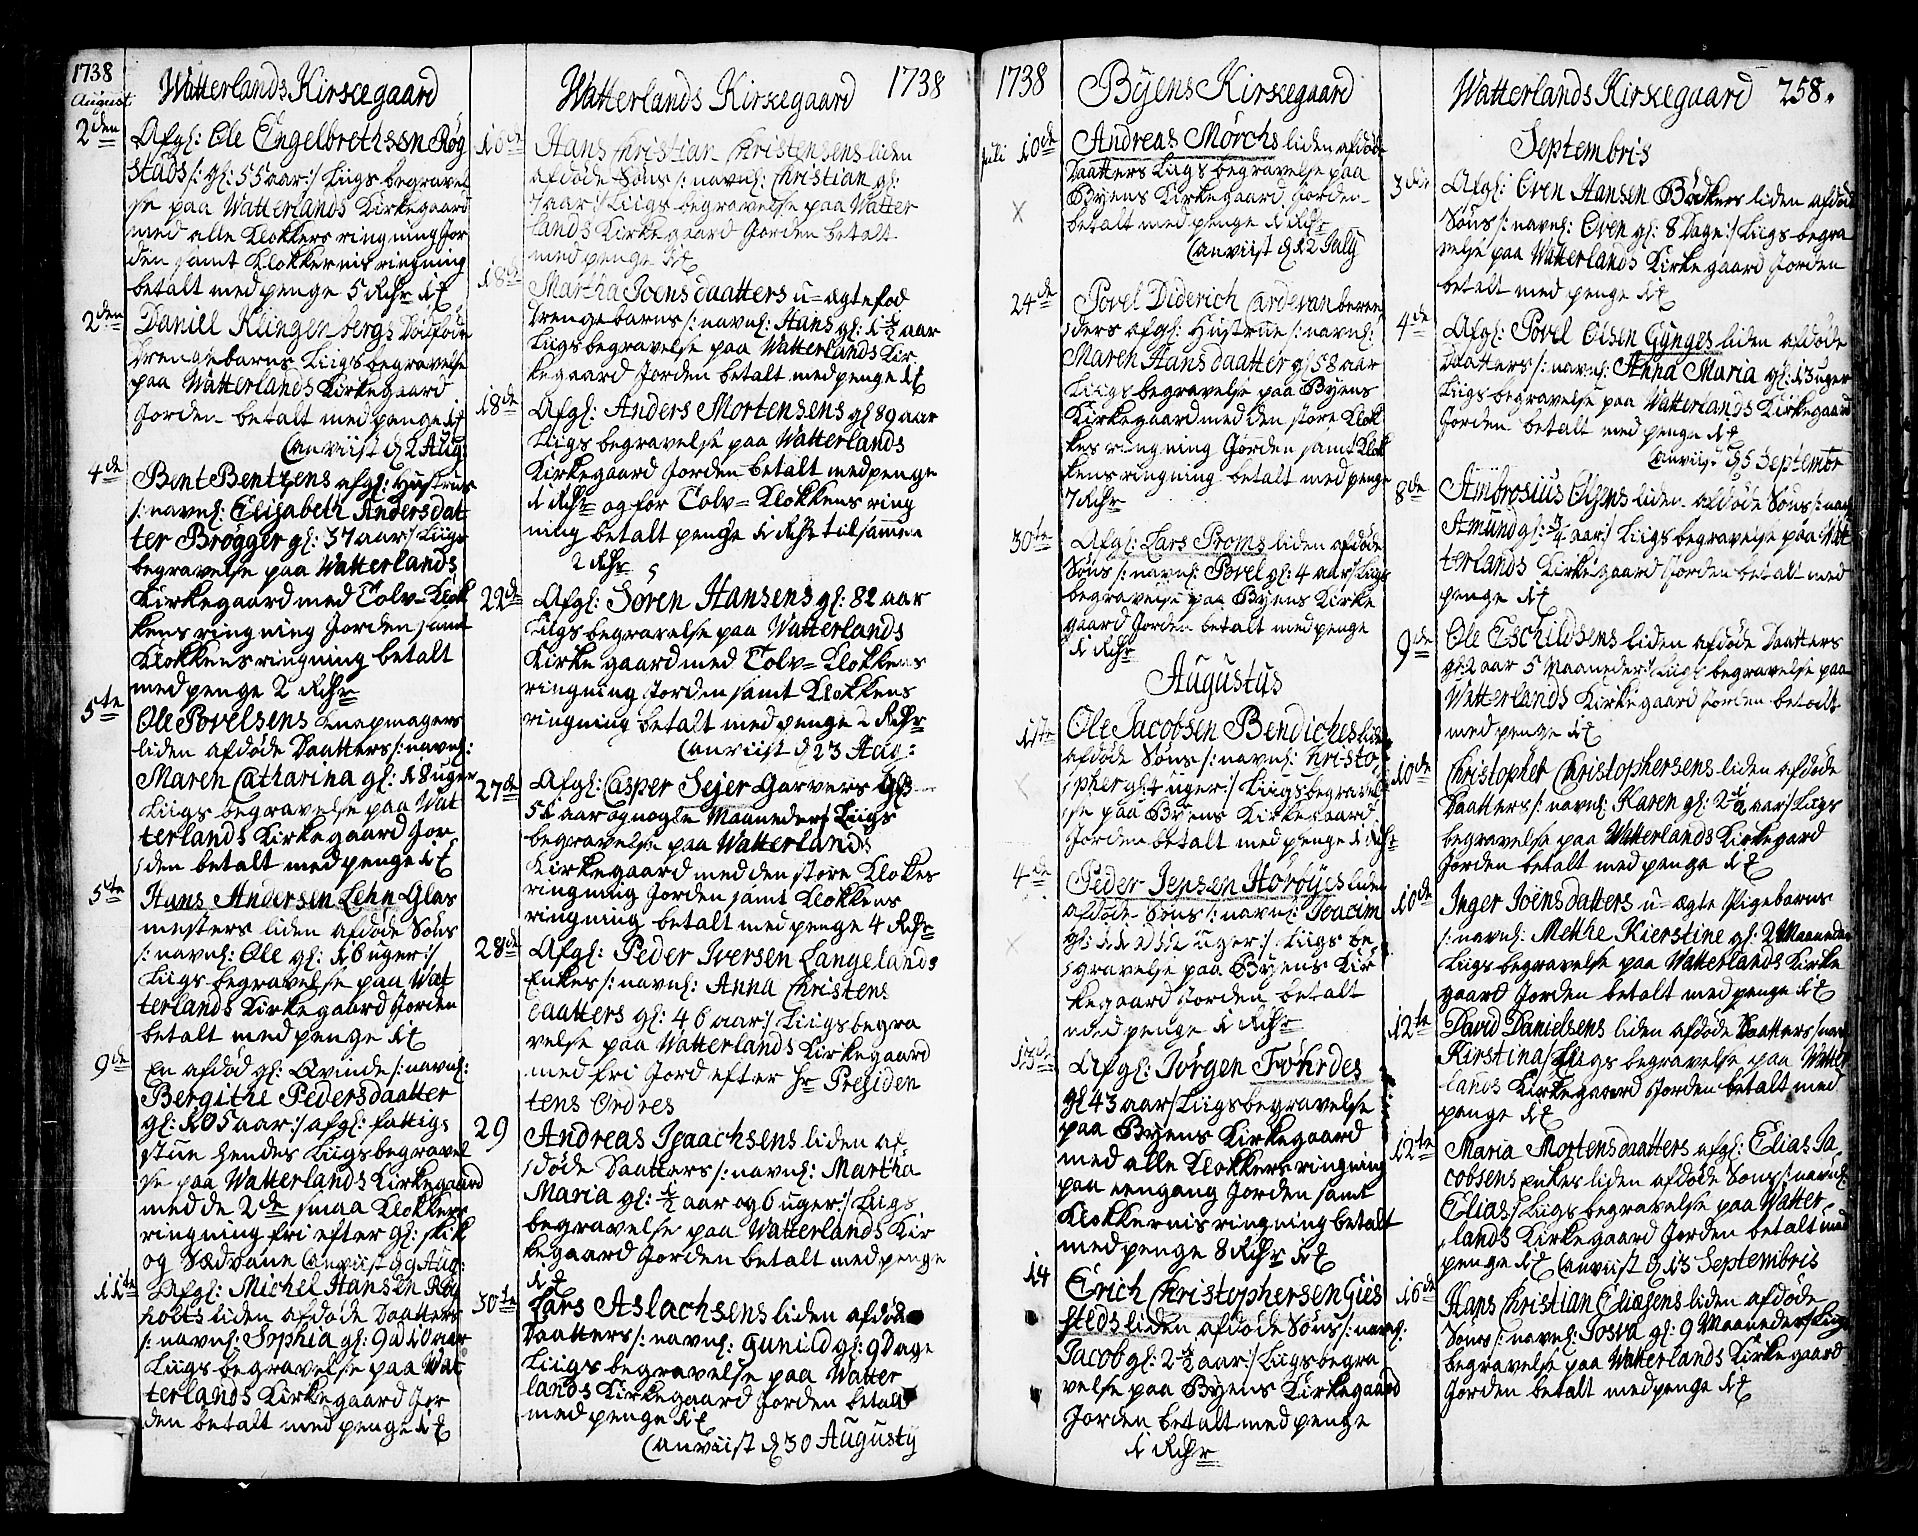 1738
August
Watterlands Kirkegaard
2den
Afgl: Ole Engelbrethsen Røg
stads /: gl: 55 aar :/ Liigs begravel
se paa Watterlands Kirkegaard
med alle Klokkers ringning Jor
den samt Klokkernis ringning
betalt med penge 5 Rdhr
2den
Daniel Klingenbergs Dødføde
drengebarns Liigs begravelse
paa Watterlands Kirkegaard
Jorden betalt med penge
Canviist d 2 Aug:
4de
Bent Bentzens afgl: Hustrues
/: navnl: Elisabeth Andersdat
ter Brøgger gl: 37 aar :/ Liigs
begravelse paa Watterlands
Kirkegaard med Tolv= Klok
kens ringning Jorden samt
Klokkens ringning betalt
med penge 2 Rdhr
5te
Ole Povelsens Knapmagers
liden afdøde Daatters /: navnl:
Maren Catharina gl: 18 uger
Liigs begravelse paa Wat
terlands Kirkegaard Jor
den betalt med penge
5te
Hans Andersen Lehn Glas
mesters liden afdøde Søns
/: navnl: Ole gl: 16 uger :/
Liigs begravelse paa Wat
terlands Kirkegaard Jorden
betalt med penge
9de
En afdød gl: Qvinde /: navnl:
Bergithe Pedersdaatter
gl: 105 aar :/ afgl: fattigs
stue hendes Liigs begravel
se paa Watterlands Kirkegaard
med de 2de smaa Klokkers
ringning fri efter gl: skik
og Sædvane Canviist d 9 Aug:
11te
Afgl: Michel Hansen
holts liden afdøde Daatters
/: navnl: Sophia gl: 9 a 10 aar
Liigs begravelse paa Wat
terlands Kirkegaard Jor
den betalt med penge
Watterlands Kirkegaard 1738
16de
Hans Christian Christensens liden
afdøde Søns /: navnl: Christian gl:
7 aar :/ Liigs begravelse paa Watter
lands Kirkegaard Jorden betalt
med penge
18de
Martha Joensdaatters u= ægte fød
drengebarns /: navnl: Hans gl: 1 1/2 aar
Liigs begravelse paa Watterlands Kir
kegaard Jorden betalt med penge
18de
Afgl: Anders Mortensens gl 89 aar
Liigs begravelse paa Watterlands
Kirkegaard Jorden betalt med penge
1 Rdhr og for Tolv= Klokkens ring
ning betalt penge 1 Rdhr tilsamme
2 Rdhr
22de
Afgl: Søren Hansens gl: 82 aar
Liigs begravelse paa Watterlands
Kirkegaard med Tolv= Klokkens
ringning Jorden samt Klokkens
ringning betalt med penge 2 Rdhr
Canviist d 23 Aug:
27de
Afgl: Casper Sejer Garvers gl:
51 aar og nogle Maaneders Liigs
begravelse paa Watterlands
Kirkegaard med den store Klokes
ringning Jorden samt Klokkens
ringning betalt med penge 4 Rdhr
28de
Afgl: Peder Iversen Langelands
Enkes /: navnl: Anna Christens
daatters gl: 46 aar :/ Liigs begra
velse paa Watterlands Kirkegaard
med fri Jord efter Hr Presiden
tens Ordres
29
Andreas Isaachsens liden af
døde Daatters /: navnl: Martha
Maria gl: 1/2 aar og 6 uger :/ Liigs
begravelse paa Watterlands Kir
kegaard Jorden betalt med penge
30te
Lars Aslachsens liden afdøde
Daatters /: navnl: Gunild gl: 9 Dage
Liigs begravelse paa Watter
lands Kirkegaard Jorden betalt
med penge
Canviist d 30 Augusty
1738 Byens Kirkegaard
Juli 10de
Andreas Mørchs liden afdøde
Daatters Liigs begravelse paa
Byens Kirkegaard Jorden
betalt med penge 1 Rdhr
Canviist d 12 July
24de
Povel Diderich Cardevanbereers
afgl: Hustrue /: navnl:
Maren Hansdaatter gl 58 aar
Liigs begravelse paa Byens
Kirkegaard med den store Klok
kes ringning Jorden samt Klok
kens ringning betalt med penge
7 Rdhr
30te
Afgl: Lars Proms liden afdøde
Søns /: navnl: Povel gl: 4 aar :/ Liigs
begravelse paa Byens Kirke
gaard Jorden betalt med penge
1 Rdhr
Augustus
Ole Jacobsen Bendiches liden
afdøde Søns /: navnl: Christo
pher gl: 4 uger :/ Liigs begravel
se paa Byens Kirkegaard
Jorden betalt med penge 1 Rdhr
4de
Peder Jensen Horøyes liden
afdøde Søns /: navnl: Joacim
gl: 11 a 12 uger :/ Liigs be
gravelse paa Byens Kir
kegaard Jorden betalt
med penge 1 Rdhr
13de
Afgl: Jørgen Föhrdes
gl 43 aar /: Liigs begravelse
paa Byens Kirkegaard
med alle Klokkers ringning
paa eengang Jorden samt
Klokkernis ringning betalt
med penge 8 Rdhr
14
Erich Christophersen Gies
steds liden afdøde Søns /: navnl:
Jacob gl: 2 1/2 aar :/ Liigs begra
velse paa Byens Kirkegaard
Jorden betalt med penge
1 Rdhr
Watterlands Kirkegaard 258.
Septembris
3die
Afgl: Even Hansen Bødkers liden afdøde
Søns /: navnl: Even gl: 8 Dage :/ Liigs begra
velse paa Watterlands Kirkegaard Jorden
betalt med penge
4de
Afgl: Povel Olsen Gynges liden afdøde
Daatters /: navnl: Anna Maria gl: 13 uger
Liigs begravelse paa Watterlands Kirkegaard
Jorden betalt med penge
Canviist d 5 Septembr
8de
Ambrosius Olsens liden afdøde Søns /: navnl
Amund gl: 3/4 aar :/ Liigs begravelse paa Wat
terlands Kirkegaard Jorden betalt med
penge
9de
Ole Eschildsens liden afdøde Daatters
gl: 2 aar 5 Maaneder :/ Liigs begravelse paa
Watterlands Kirkegaard Jorden betalt
med penge
10de
Christopher Christophersens liden afdøde
Daatters /: navnl: Karen gl: 2 1/2 aar :/ Liigs
begravelse paa Watterlands Kirkegaard
Jorden betalt med penge
10de
Inger Joensdatters u= ægte Pigebarns
/: navnl: Methe Kierstine gl: 2 Maaneder
Liigs begravelse paa Watterlands Kirke
gaard Jorden betalt med penge
12te
David Danielsens liden afdøde Daatters /: navnl
Kirstina /: Liigs begravelse paa Watter
lands Kirkegaard Jorden betalt med
penge
12te
Maria Mortensdaatters afgl: Elias Ja
cobsens Enkes liden afdøde Søns /: navnl:
Elias /: Liigs begravelse paa Watter
lands Kirkegaard Jorden betalt med
penge Canviist d 13 Septembris
16de
Hans Christian Eliasens liden afdøde
Søns /: navnl: Josva gl: 9 Maaneders Liigs
begravelse paa Watterlands Kirkegaard
Jorden betalt med penge